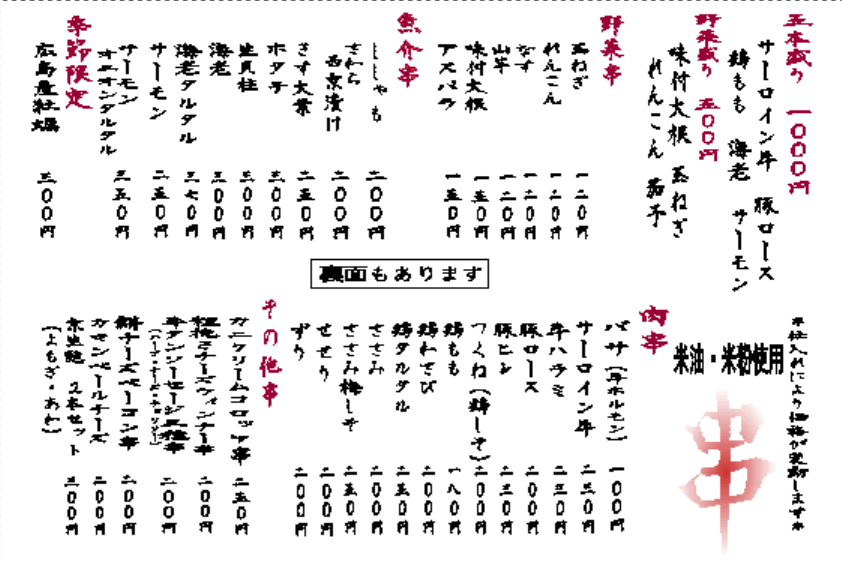 五本盛り 一000円
サーロイン牛 豚ロース
鶏もも 海老 サーモン
野菜盛り 五00円
味付大根 玉ねぎ
れんこん 茄子
野菜串
玉ねぎ 一二0円
れんこん 一二0円
なす 一二0円
山芋 一二0円
味付大根 一五0円
アスパラ 一五0円
魚介串
ししゃも 二00円
さわら西京漬け 二00円
きす大葉 二五0円
ホタテ 三00円
生貝柱 三00円
海老 三00円
海老タルタル
サーモン 二五0円
サーモンオニオンタルタル 三五0円
季節限定
広島産牡蠣 三00円
裏面もあります
※仕入れにより価格が変動します※
米油・米粉使用
串
肉串
バサ(牛ホルモン) 一00円
サーロイン牛 二五0円
牛ハラミ 二三0円
豚ロース 二00円
豚ヒレ 二三0円
つくね(鶏しそ) 二00円
鶏もも 一八0円
鶏わさび 二00円
鶏タルタル 二五0円
ささみ 二00円
ささみ梅しそ 二五0円
せせり 二00円
ずり 二00円
その他串
カニクリームコロッケ串 二五0円
チーズウィンナー串 二00円
二00円
餅チーズベーコン串 二00円
カマンベールチーズ 二00円
京生麩 2本セット 三00円
(よもぎ・あわ)